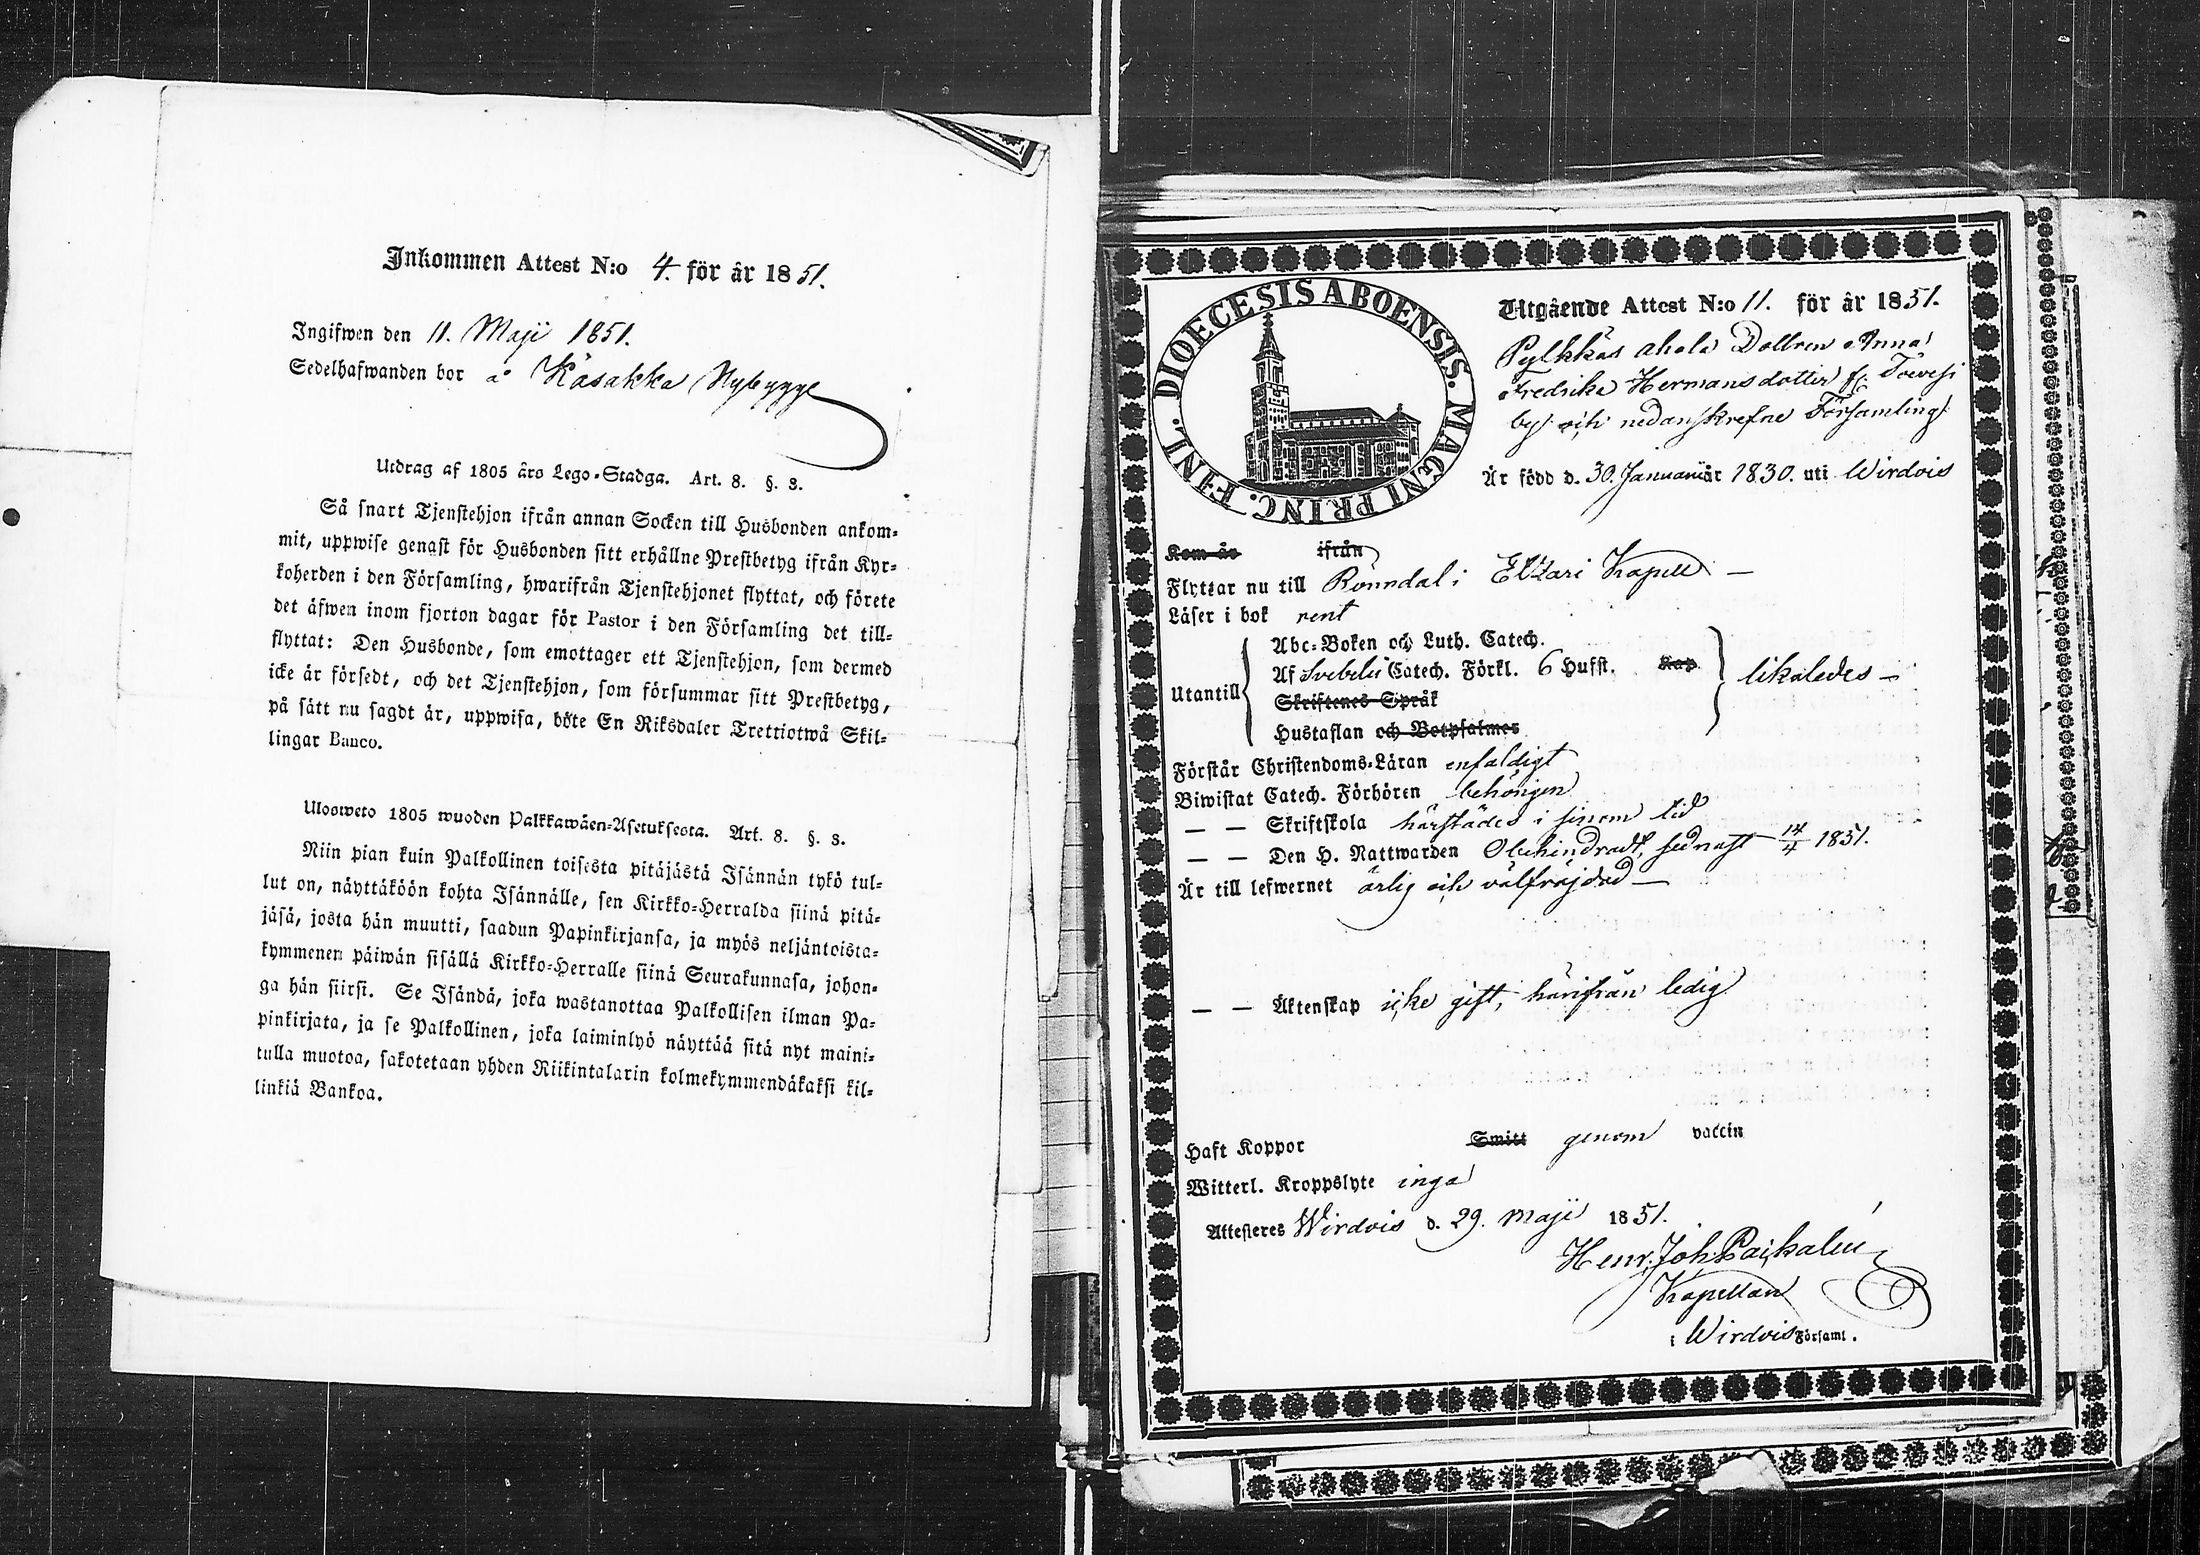 Inkommen Attest N:o 4. för år 1851.
Ingifwen den 11. Maji 1851.
Sedelhafwanden bor å Kasakka Nybygge
Utdrag af 1805 års Lego-Stadga. Art. 8. §. 3.
Så snart Tjenstehjon ifrån annan Socken till Husbonden ankom-
mit, uppwise genast för Husbonden sitt erhållne Prestbetyg ifrån Kyr-
koherden i den Församling, hwarifrån Tjenstehjonet flyttat, och förete
det äfwen inom fjorton dagar för Pastor i den Församling det till-
flyttat: Den Husbonde, som emottager ett Tjenstehjon, som dermed
icke är försedt, och det Tjenstehjon, som försummar sitt Prestbetyg,
på sätt nu sagdt är, uppwisa, böte En Riksdaler Trettiotwå Skil-
lingar Banco.
Ulosweto 1805 wuoden Palkkawäen-Asetuksesta. Art. 8. §. 3.
Niin pian kuin Palkollinen toisesta pitäjästä Isännän tykö tul-
lut on, näyttäköön kohta Isännälle, sen Kirkko-Herralda siinä pitä-
jäsä, josta hän muutti, saadun Papinkirjansa, ja myös neljäntoista-
kymmenen päiwän sisällä Kirkko-Herralle siinä Seurakunnasa, johon-
ga hän siirsi. Se Isändä, joka wastanottaa Palkollisen ilman Pa-
pinkirjata, ja se Palkollinen, joka laiminlyö näyttää sitä nyt maini-
tulla muotoa, sakotetaan yhden Riikintalarin kolmekymmendäkaksi kil-
linkiä Bankoa.
DIOECESIS ABOENSIS. MAGNI PRINC. FINL.
Utgående Attest N:o 11. för år 1851.
Pylkkäs ahola Dottren Anna
Fredrika Hermansdotter fr.
by och nedanskrefne Församling
Är född d. 30. Januarii år 1830. uti Wirdois
Kom år ifrån
Flyttar nu till Rönndal i Etzari Kapell —
Läser i bok rent
Utantill
Abc-Boken och Luth. Catech.
Af Svebelii Catech. Förkl. 6 Hufst. Kap
Skriftenes Språk
Hustaflan och Botpsalmer
likaledes —
Förstår Christendoms-Läran enfaldigt
Biwistat Catech. Förhören behörigen
— — Skriftskola härstädes i sinom tid
— — Den H. Nattwarden Obehindradt, sednast 14/4 1851.
Är till lefwernet ärlig och välfräjdad —
— — Äktenskap icke gift, härifrån ledig
Haft Koppor Smitt genom vaccin
Witterl. Kroppslyte inga
Attesteres Wirdois d. 29. Maji 1851.
Henr. Joh. Paskalin
Kapellan
i Wirdois Församl.